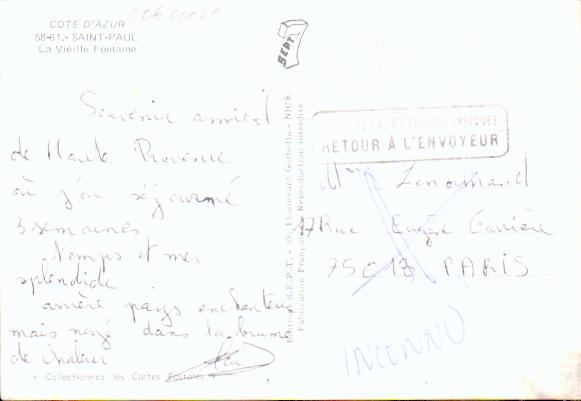 COTE D'AZUR
58-61.- SAINT-PAUL
La Vieille Fontaine
SEPT
Souvenir amical
de Haute Provence
où j'ai séjourné
3 semaines
temps et mer
splendide
arrière pays enchanteur
mais noyé dans la brume
de chaleur
« Collectionnez les Cartes Postales »
Editions S.E.P.T. - 35, Boulevard Gorbella - NICE
Fabrication Française - Reproduction interdite
RETOUR À L'ENVOYEUR
Mme Lenormand
17 Rue Eugène Carrière
75018 PARIS
INCONNU